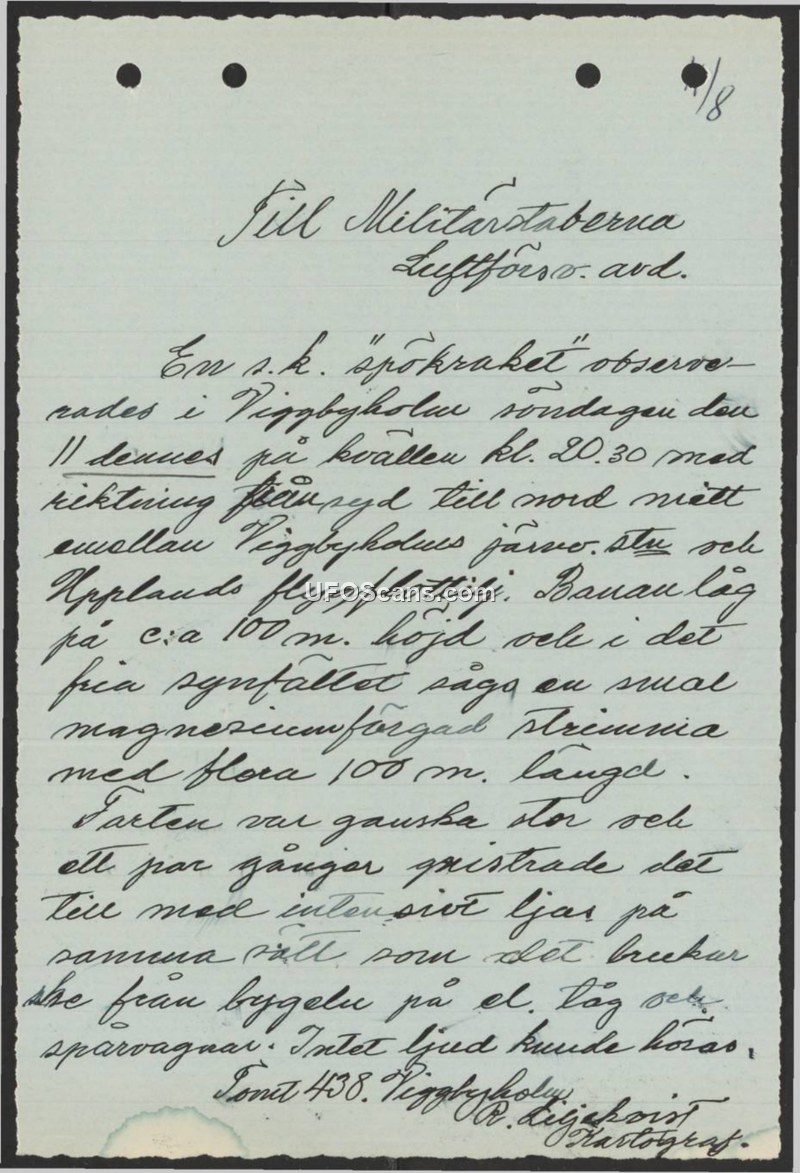 /8
Till Militärstaberna
Luftförsv. avd.
En s.k. "spökraket" observe-
rades i Viggbyholm söndagen den
11 dennes på kvällen kl. 20.30 med
riktning från syd till nord mitt
emellan Viggbyholms järnv. stn och
Upplands flygflottilj. Banan låg
på c:a 100 m. höjd och i det
fria synfältet sågs en smal
magnesiumfärgad strimma
med flera 100 m. längd.
Farten var ganska stor och
ett par gånger gnistrade det
till med intensivt ljus på
samma sätt som det brukar
ske från bygeln på el. tåg och
spårvagnar. Intet ljud kunde höras.
Tomt 438. Viggbyholm
R. Liljekvist
Kartograf.
UFOScans.com